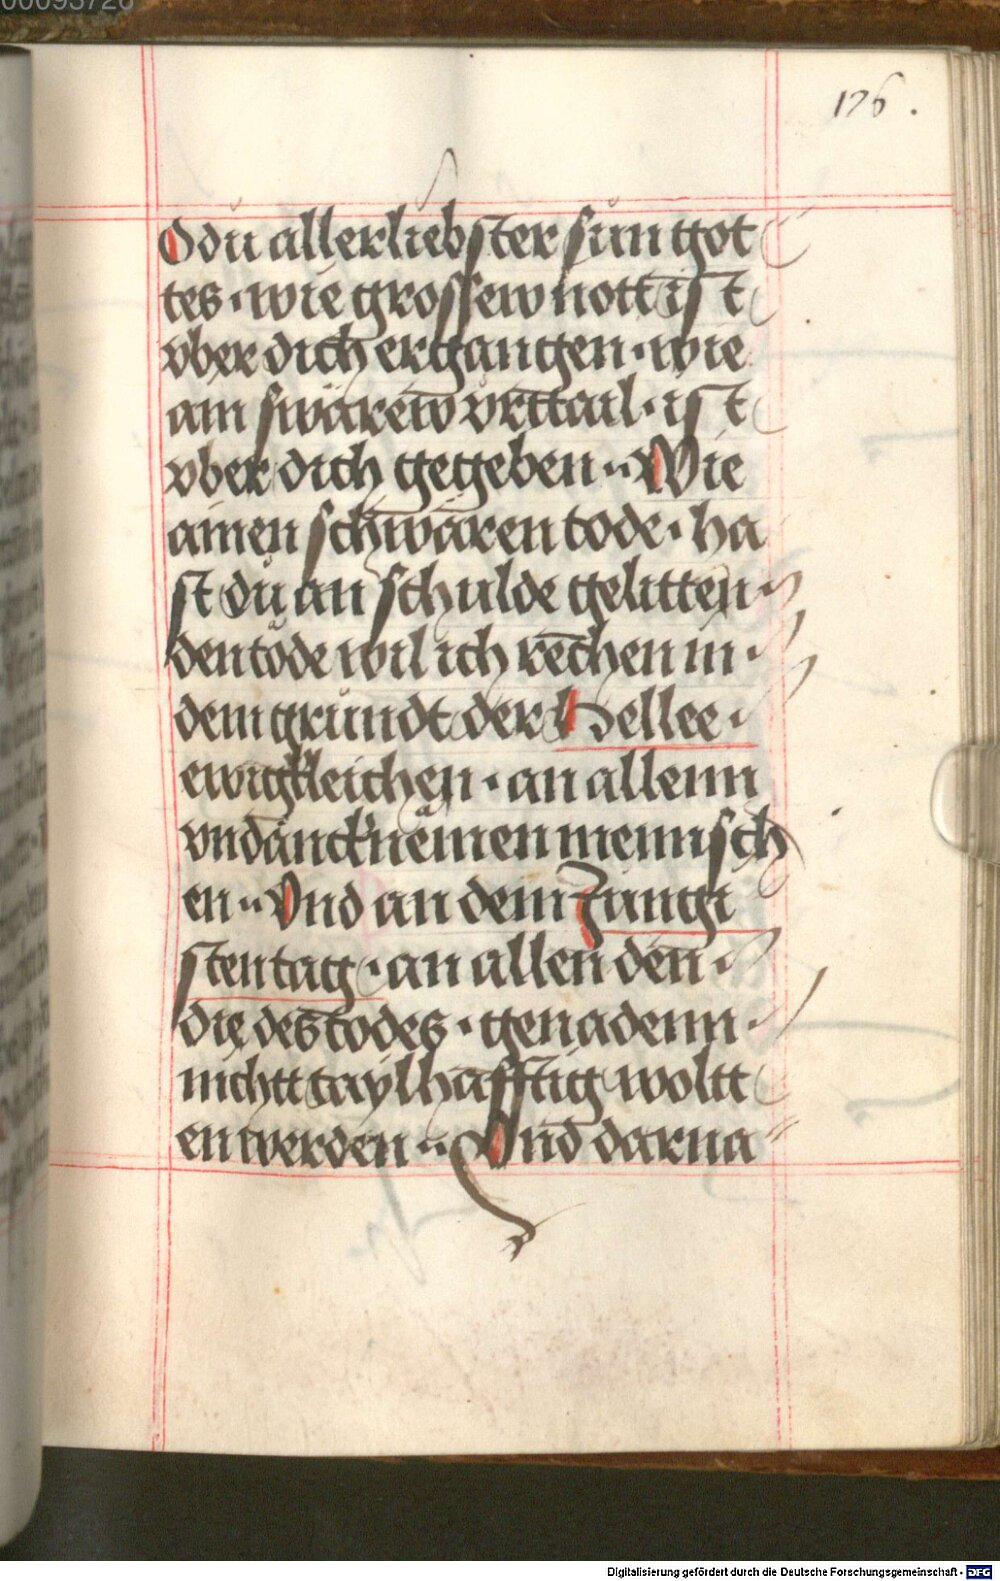 00093726
126.
O dú aller liebster sún got
tes · wie grossew nott ist
vber dich ergangen · wie
ain swärew vrttail · ist
vber dich gegeben ·· Wie
ainen schwären tode · ha
st dú an schulde gelitten ·
den tode wil ich rechen in ·
dem grúndt der Hellee ·
ewigkleichen · an allenn
vndancknëmen mennsch
en ·· Vnd an dem Jungi
sten tag · an allen den ·
die des todes · genadenn ·
nichtt taylhafftig woltt
en werden ·· Vnd darna
Digitalisierung gefördert durch die Deutsche Forschungsgemeinschaft - DFG